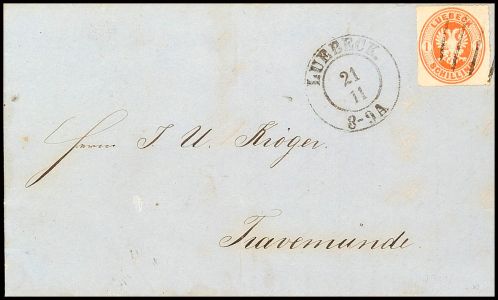 LUEBECK
1
SCHILLING
LUEBECK.
21
11
8-9A
Herrn J U. Kröger.
Travemünde.